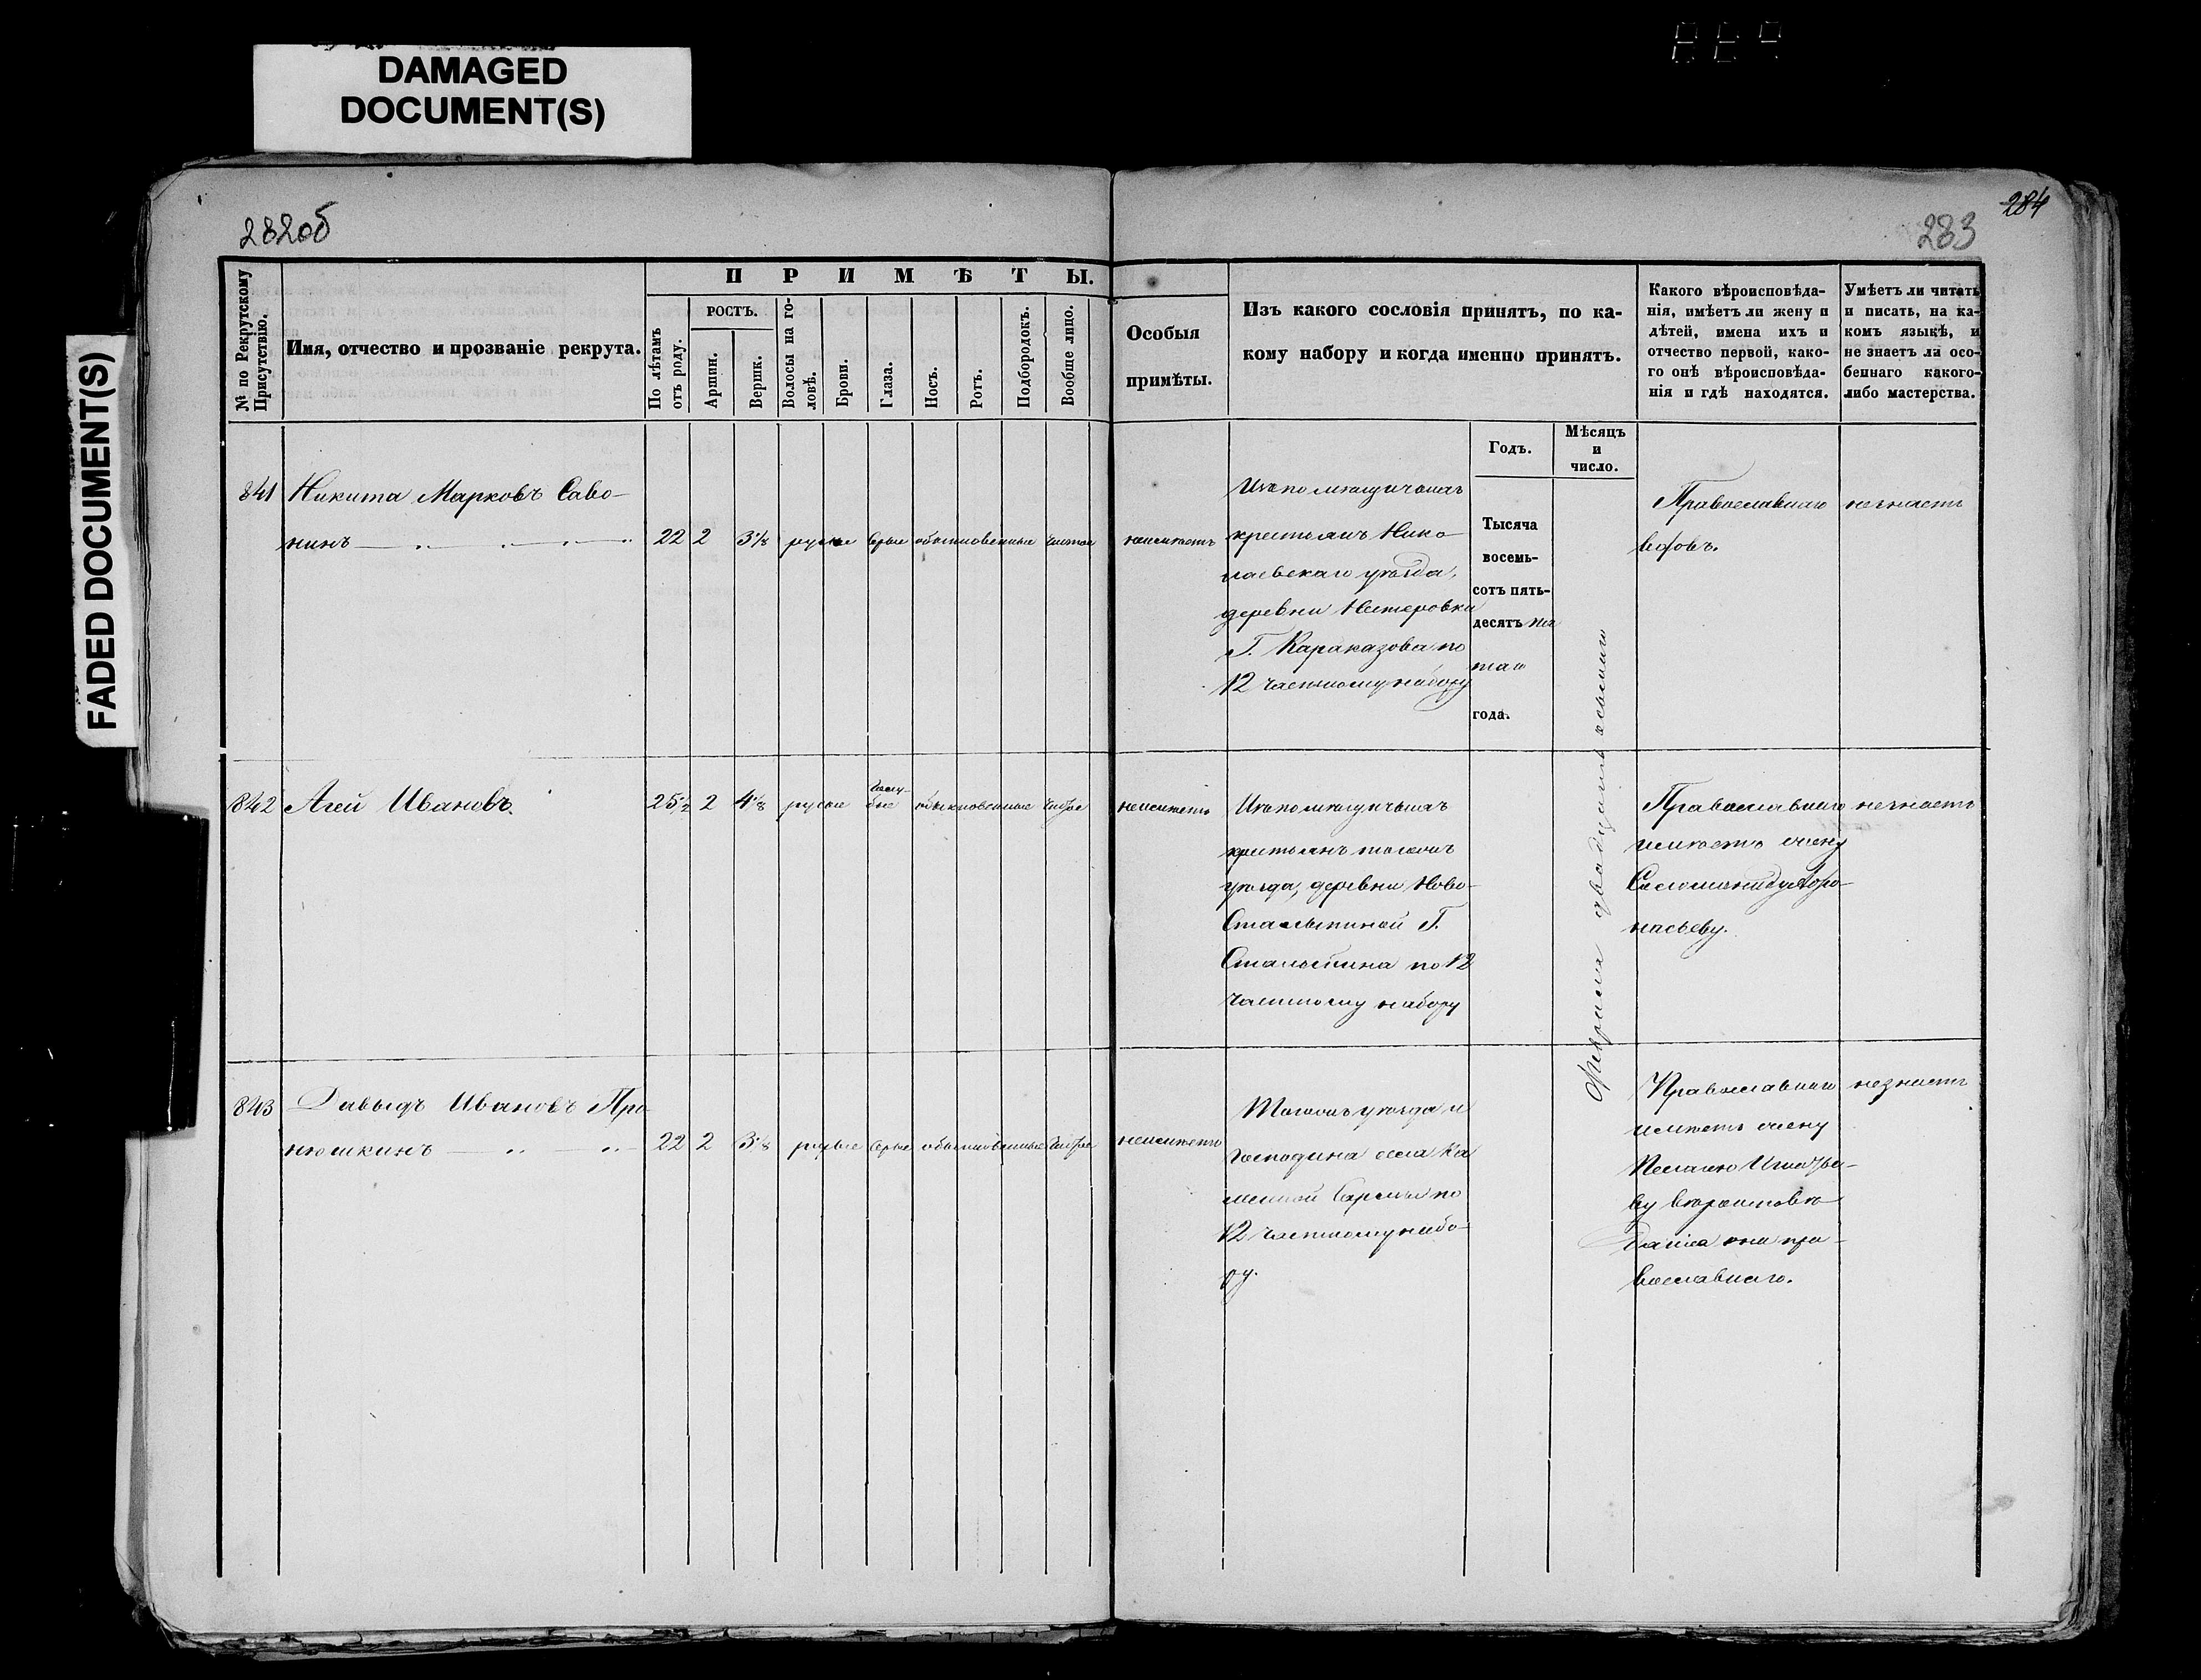 DAMAGED
DOCUMENT(S)
FADED DOCUMENT(S)
282об
284
283
№ по Рекрутскому
Присутствію.
Имя, отчество и прозваніе рекрута.
ПРИМѢТЫ.
По лѣтамъ
отъ роду.
РОСТЪ.
Аршин.
Вершк.
Волосы на го-
ловѣ.
Брови.
Глаза.
Носъ.
Ротъ.
Подбородокъ.
Вообще лицо.
Особыя
примѣты.
Изъ какого сословія принятъ, по ка-
кому набору и когда именно принятъ.
Какого вѣроисповѣда-
нія, имѣетъ ли жену и
дѣтей, имена ихъ и
отчество первой, како-
го онѣ вѣроисповѣда-
нія и гдѣ находятся.
Умѣетъ ли читать
и писать, на ка-
комъ языкѣ, и
не знаетъ ли осо-
беннаго какого-
либо мастерства.
Годъ.
Мѣсяцъ
и
число.
841 Никита Марковъ Саво-
нинъ 22 2 3 1/8 русые серые обыкновенные чистое неимѣетъ
Изъ помѣщичьихъ
крестьянъ Нико-
лаевскаго уѣзда,
деревни Нестеровки
Г. Караказова по
12 частному набору
Тысяча
восемь-
сотъ пять-
десятъ пя
таго
года.
Февраля двадцать осьмаго
Православнаго
вдовъ.
незнаетъ
842 Агей Ивановъ. 25 1/2 2 4 1/8 русые голу-
бые обыкновенные чистое неимѣетъ
Изъ помѣщичьихъ
крестьянъ тогожъ
уѣзда, деревни Ново-
Столыпиной Г.
Столыпина по 12
частному набору
Православнаго
имѣетъ жену
Соломониду Афо-
насьеву.
незнаетъ
843 Давыдъ Ивановъ Про
нюшкинъ 22 2 3 1/8 русые серые обыкновенные чистое неимѣетъ
Тогожъ уѣзда и
Господина села Ка
менной Сармы по
12 частному набо-
ру.
Православнаго
имѣетъ жену
Пелагею Игнатье-
ву вероисповѣ-
данія она пра-
вославнаго.
незнаетъ